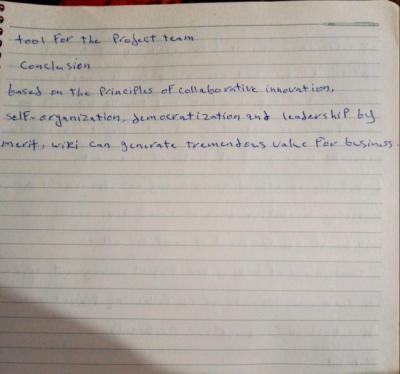 tool For the Project team
Conclusion
based on the Principles of collaborative innovation,
self-organization, democratization and leadership by
merit, wiki can generate tremendous value For business.